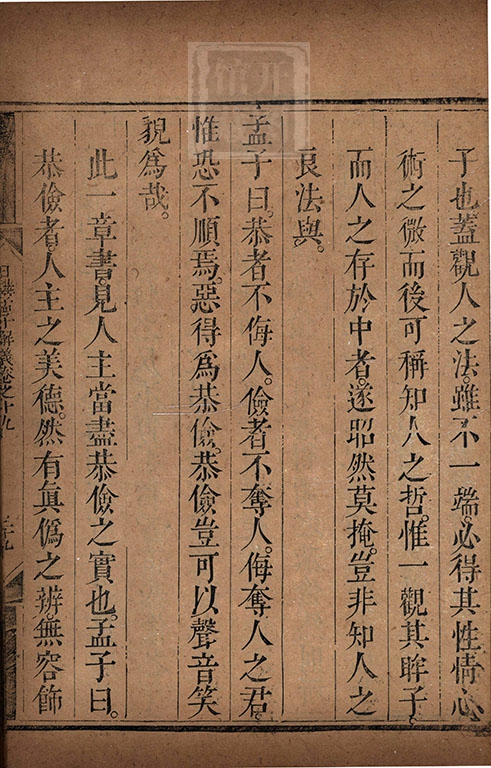 子也蓋觀人之法。雖不一端必得其性情心
術之微而後可稱知人之哲。惟一觀其眸子。
而人之存於中者。遂昭然莫掩。豈非知人之
良法與。
孟子曰。恭者不侮人。儉者不奪人。侮奪人之君。
惟恐不順焉。惡得爲恭儉。恭儉豈可以聲音笑
貌爲哉。
此一章書。見人主當盡恭儉之實也。孟子曰。
恭儉者。人主之美德。然有眞僞之辨。無容飾
日講四書解義卷之十九